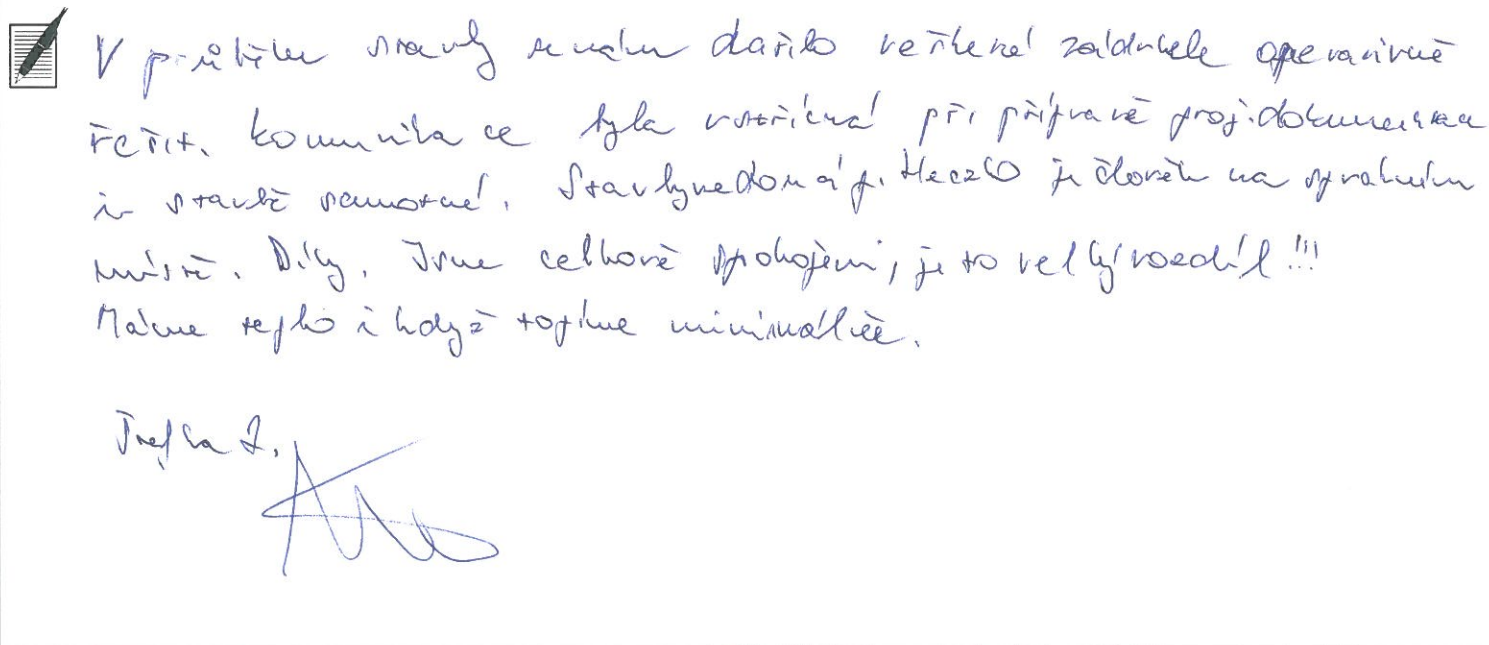 V průběhu stavby se nám dařilo veškeré zádrhele operativně
řešit. Komunikace byla vstřícná při přípravě proj. dokumentace
i v stavbě samotné. Stavbyvedoucí p. Heczko je člověk na správném
místě. Díky. Jsme celkově spokojeni, je to velký rozdíl!!!
Máme teplo i když topíme minimálně.